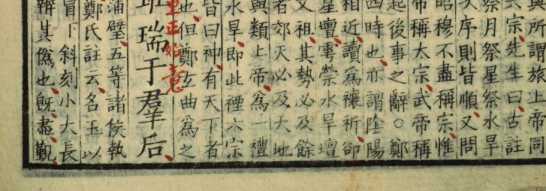 與所謂旅上帝同
六宗先生曰古註
祭月祭星祭水旱
次序則皆順又問
昭穆不盡稱宗惟
帝稱太宗武帝稱
起後事之辭○鄭
四時也亦謂陰陽
相近讀爲禳祈卻
星壇雩禜水旱壇
文祖其勢必及餘
者郊天必及天地
與類上帝爲一禮
水旱即此禋六宗
皆曰神有天下者
也但鄭曲爲之
瑞于羣后
蒲璧五等諸侯執
鄭氏註云名玉以
冒下斜刻小大長
辨其僞也既盡覲